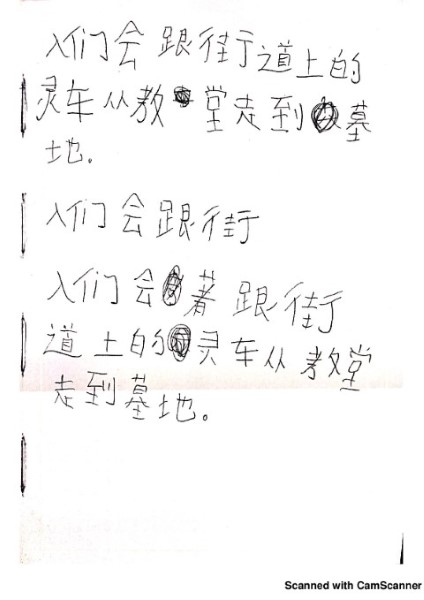 入们会跟街道上的
灵车从教堂走到墓
地。
入们会跟街
入们会着跟街
道上的灵车从教堂
走到墓地。
Scanned with CamScanner